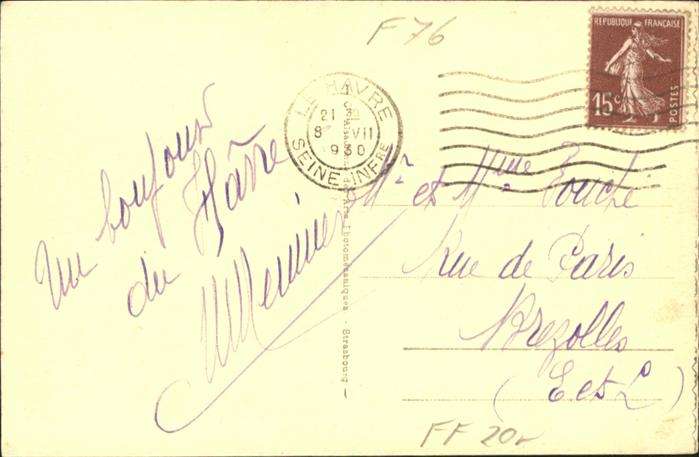 F 76
REPUBLIQUE FRANÇAISE
15c
POSTES
LE HAVRE
21 30
8 VII
1930
SEINE INFRE
Un bonjour
du Hâvre
Mr et Mme Fouché
Rue de Paris
Brezolles
(E et L)
Arts Photomécaniques - Strasbourg
FF 20